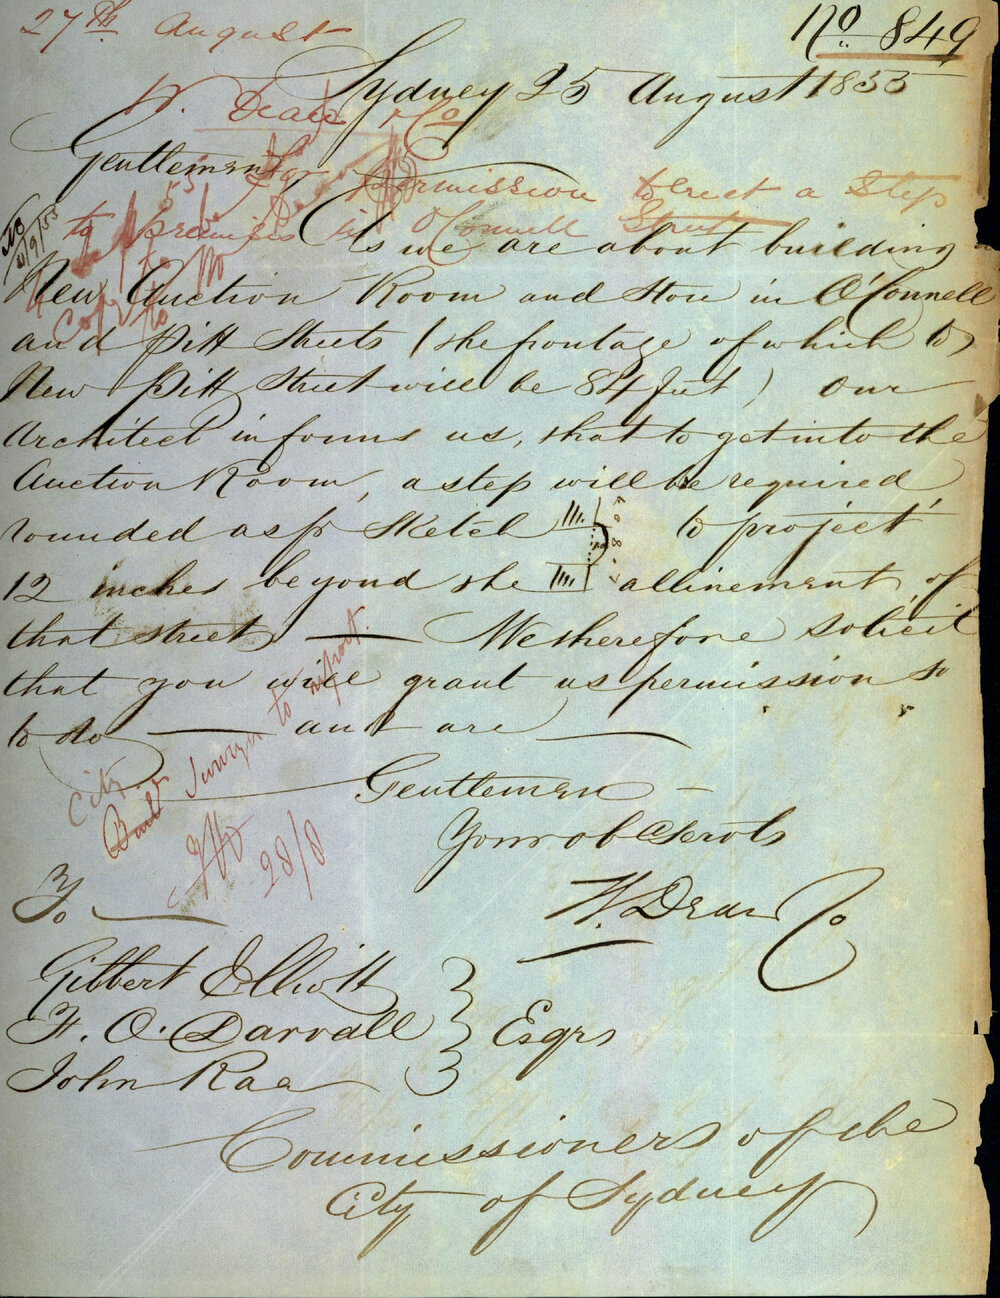 27th August
No. 849
Sydney 25 August 1855
W. Dean & Co
Gentlemen,
For permission to erect a Step
to premises in O'Connell Street
4/9/55
As we are about building a
New Auction Room and Store in O'Connell
and Pitt Streets (the frontage of which to
New Pitt Street will be 84 feet) our
Architect informs us, that to get into the
Auction Room, a step will be required,
rounded as pr Sketch to project
12 inches beyond the allinement of
that street — We therefore solicit
that you will grant us permission so
to do — and are —
City
Build Surveyor to report.
28/8
Gentlemen —
Your ob Servts
W. Dean & Co
To —
Gilbert Elliott
F. O. Darvall
John Rae
Esqrs
Commissioners of the
City of Sydney